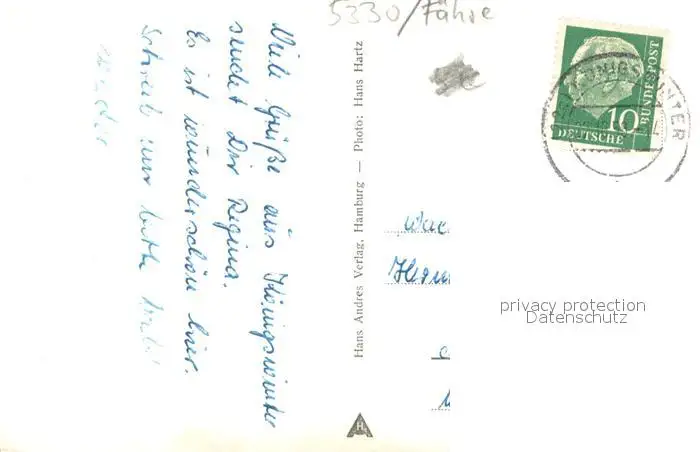 5330/Fähre
Viele Grüße aus Königswinter
sendet Dir Regina.
Es ist wunderschön hier.
Schreib mir bitte
wieder
Hans Andres Verlag, Hamburg — Photo: Hans Hartz
KÖNIGSWINTER
10
DEUTSCHE
BUNDESPOST
privacy protection
Datenschutz